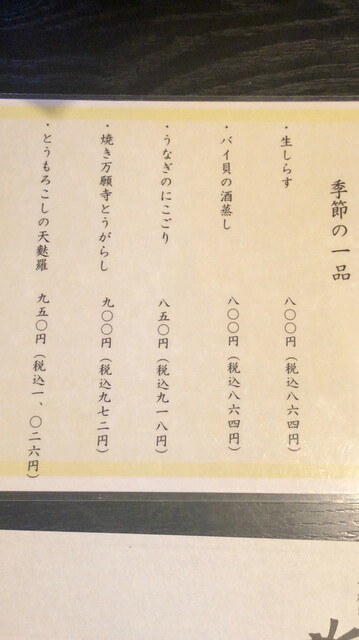 季節の一品
・生しらす 八〇〇円（税込八六四円）
・バイ貝の酒蒸し 八〇〇円（税込八六四円）
・うなぎのにこごり 八五〇円（税込九一八円）
・焼き万願寺とうがらし 九〇〇円（税込九七二円）
・とうもろこしの天麩羅 九五〇円（税込一、〇二六円）